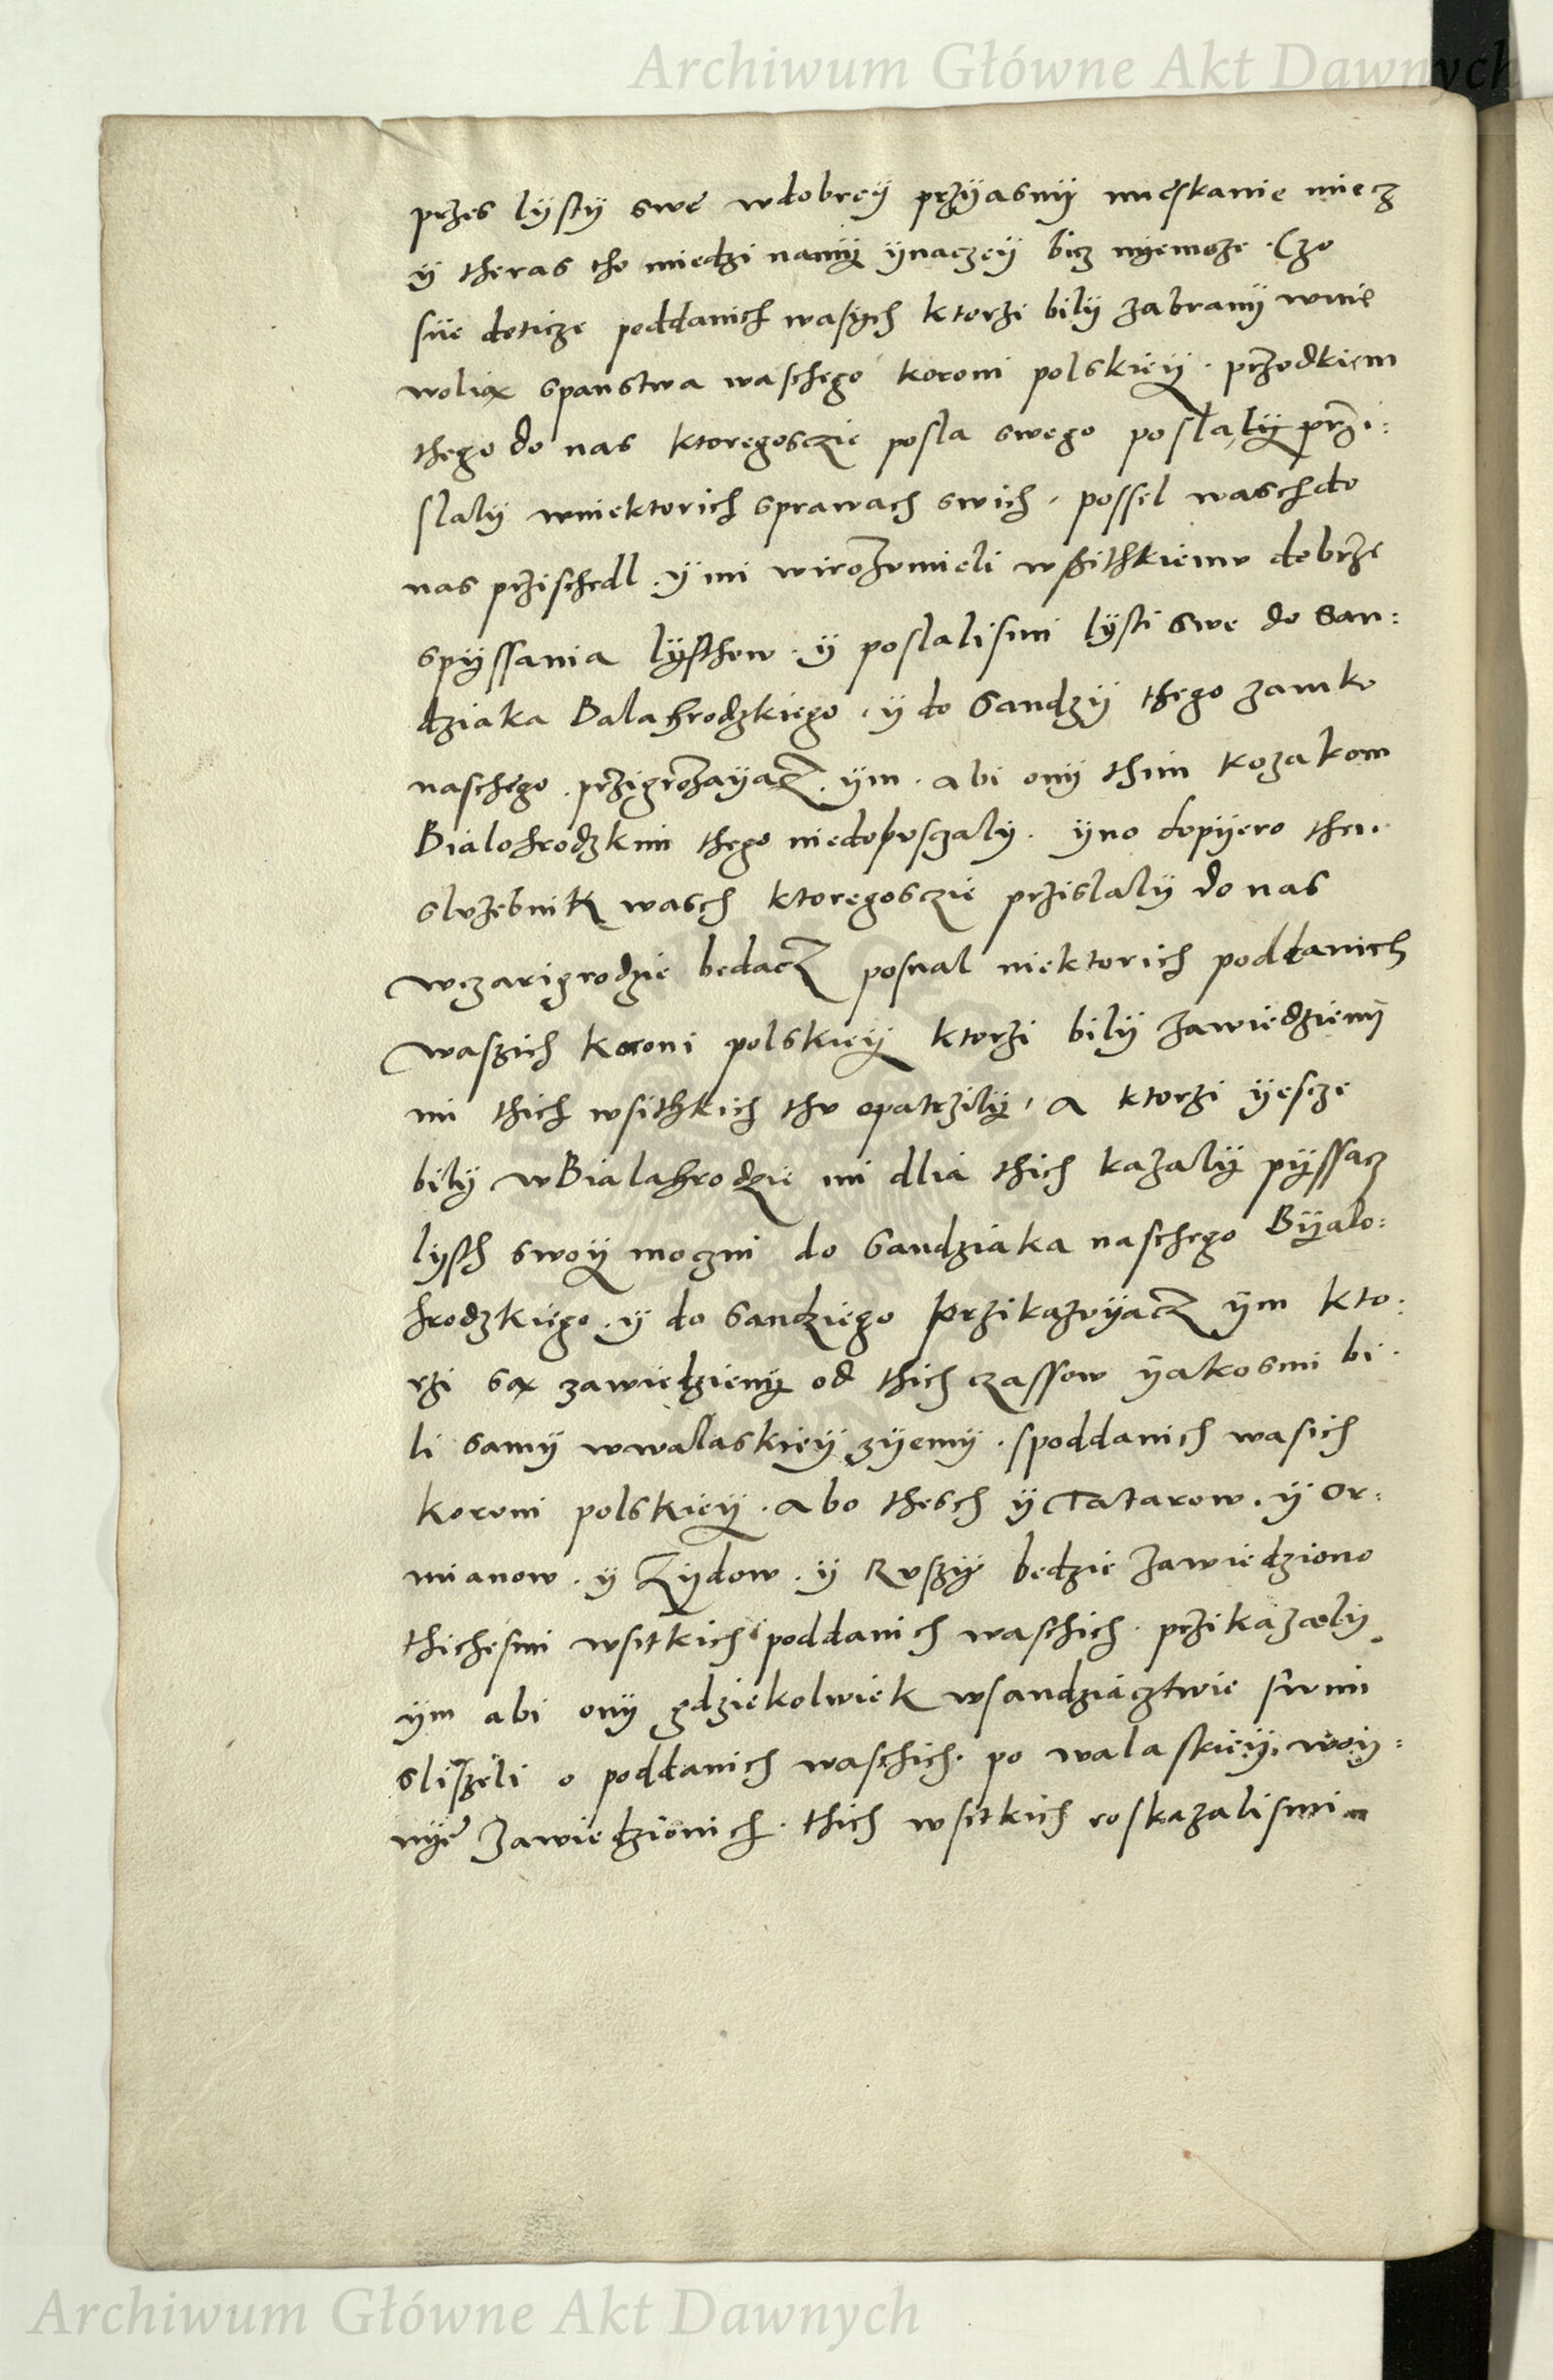 Archiwum Główne Akt Dawnych
przes lÿstÿ swe wdobreÿ przÿasnÿ mieskanie miecz
ÿ theras tho miedzi namÿ ÿnaczeÿ bicz nÿemoze. Czo
siie doticze poddanich wasÿch ktorzi bilÿ zabranÿ wnie
wolią spanstwa waschego koroni polskieÿ. przodkiem
thego do nas ktoregosczie posla swego poslalÿ przi:
slalÿ wniektorich sprawach swich, possel wasch do
nas przischedl. ÿ mi wirozumieli wsithkiemu dobrze
spÿssania lÿsthow. ÿ poslalismi lÿsti swe do San:
dziaka Balahrodzkiego, ÿ do Sandzÿ thego zamko
naschego. przigrozaÿacz ÿm. abi onÿ thim kozakom
Bialohrodzkim thego niedopusczalÿ. ÿno dopÿero then
sluzebnik wasch ktoregosczie przislalÿ do nas
wczarigrodzie bedacz posnal niektorich poddanich
waszich koroni polskieÿ ktorzi bilÿ zawiedzienÿ
mi thich wsithkich thu opatrzilÿ, a ktorzi ÿescze
bilÿ wBialahrodzie mi dlia thich kazalÿ pÿssacz
lÿsth swoÿ moczni do Sandziaka naschego Bÿalo:
hrodzkiego. ÿ do Sandziego przikazuÿacz ÿm kto:
rzi są zawiedzienÿ od thich czassow ÿakosmi bi.
li samÿ wwalaskieÿ zÿemÿ. spoddanich wasich
koroni polskieÿ. abo thesch ÿ Tatarow. ÿ Or:
mianow. ÿ Zÿdow. ÿ Ruszÿ bedzie zawiedziono
thichesmi wsitkich poddanich waschich. przikazalÿ
ÿm abi onÿ gdziekolwiek wsandziacztwie swim
sliszeli o poddanich waschich. po walaskieÿ woÿ:
nÿe zawiedzionich. thich wsitkich roskazalismi
Archiwum Główne Akt Dawnych